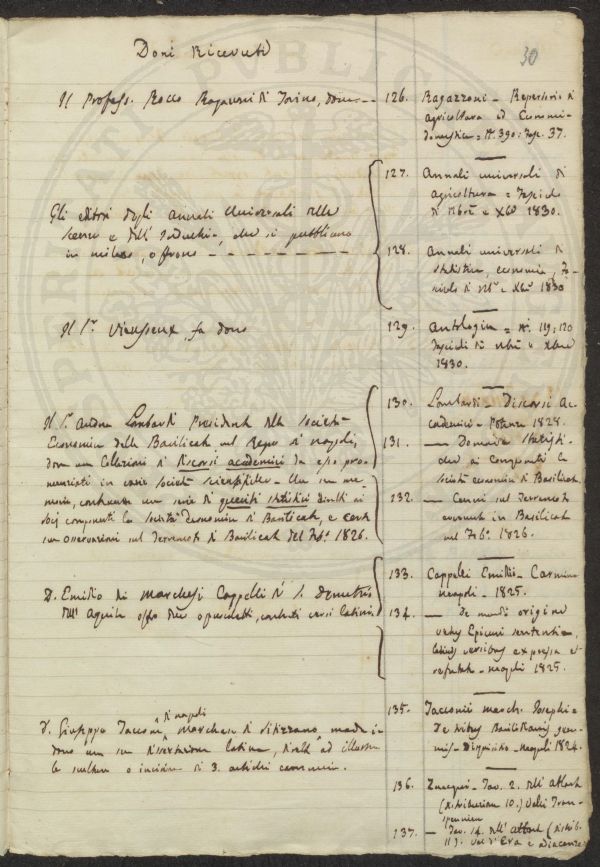 Doni Ricevuti
30
Il Profess. Rocco Ragazzoni di Torino, dona
126. Ragazzoni - Repertorio di
agricoltura ed Economia
domestica = N. 390: Fasc. 37.
Gli editori degli annali Universali delle
scienze e dell' Industria, che si pubblicano
in milano, offrono
127. Annali universali di
agricoltura = Fascicolo
di 9bre e Xbre 1830.
128. Annali universali di
statistica, economia, Fa-
scicolo di 9bre e Xbre 1830
Il Sr. Vieusseux, fa dono
129. Antologia = N. 119: 120
Fascicoli di 9bre e Xbre
1830.
Il Sr. Andrea Lombardi Presidente della Società
Economica della Basilicata nel Regno di napoli,
dona una Collezione di Discorsi accademici da esso pro-
nunziati in varie Società scientifiche - Una sua me-
moria, contenente una serie di quesiti statistici diretti ai
Soci componenti la Società economica di Basilicata, e
sue osservazioni sul terremoto di Basilicata del Febb. 1826.
130. Lombardi - Discorsi Ac-
cademici - Potenza 1828.
131. — Domande statisti-
che ai Componenti la
Società economica di Basilicata.
132. — Cenni sul terremoto
avvenuto in Basilicata
nel Feb. 1826.
D. Emilio de marchesi Cappelli di S. Demetrio
dell' Aquila offre due opuscoletti, contenenti versi latini.
133. Cappelli Emilii - Carmina
neapoli - 1825.
134. — De mundi origine
Epicuri sententia,
latinis versibus expressa et
refutata - neapoli 1825.
D. Giuseppe Tacconi di napoli marchese di Sitizzano, manda in
dono una sua dissertazione latina, diretta ad illustrare
la scultura o incisione di 3. antichi
135. Tacconii march. Josephi =
De tribus Basilidianis gem-
mis - Disquisitio - Neapoli 1824.
136. Zuccagni - Tav. 2. dell' atlante
(distribuzione 10.) Valli Tran-
sapennine
137. — Tav. 14. dell' atlante (distrib.
11). Val d'Era e adiacenze